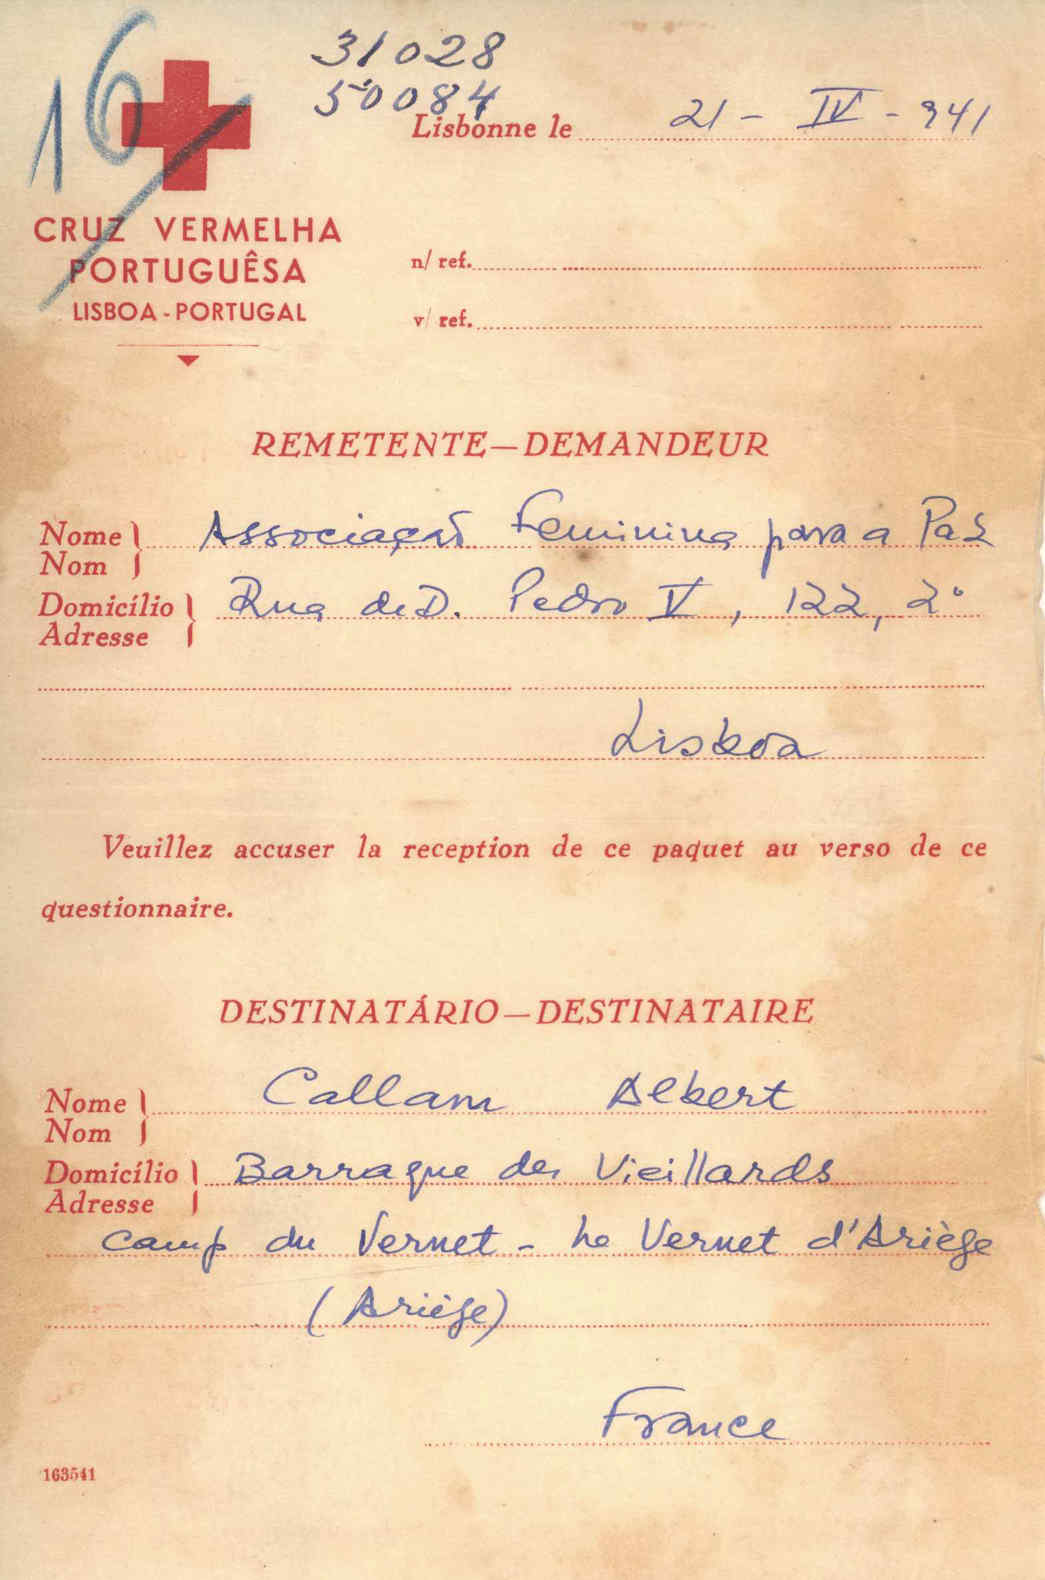 16
31028
50084
Lisbonne le 21 - IV - 941
CRUZ VERMELHA
PORTUGUÊSA
LISBOA - PORTUGAL
n/ ref.
v/ ref.
REMETENTE—DEMANDEUR
Nome Associação Feminina para a Paz
Nom
Domicílio Rua de D. Pedro V, 122, 2º
Adresse
Lisboa
Veuillez accuser la reception de ce paquet au verso de ce
questionnaire.
DESTINATÁRIO—DESTINATAIRE
Nome Callam Albert
Nom
Domicílio Barraque des Vieillards
Adresse
Camp du Vernet - Le Vernet d'Ariège
(Ariège)
France
163541